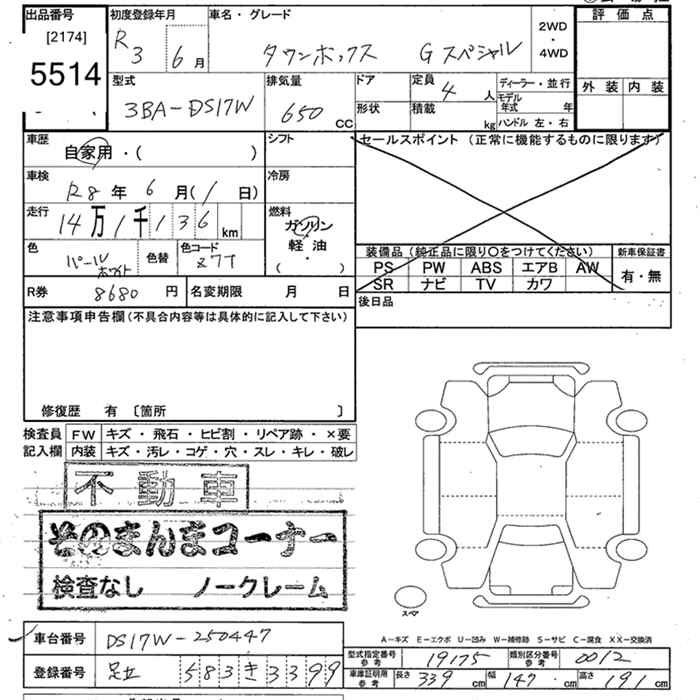 出品番号 初度登録年月 車名・グレード 2WD・4WD 評価点
[2174] R3 6月 タウンボックス Gスペシャル
5514 外装 内装
型式 排気量 ドア 定員 4人 ディーラー・並行
3BA-DS17W 650 CC 形状 積載 kg モデル年式 年
ハンドル 左・右
車歴 シフト セールスポイント (正常に機能するものに限ります)
自家用・( )
車検 冷房
R8年 6月(1日)
走行 燃料
14万1千136km ガソリン・軽油
( )
色 パールホワイト 色替 色コード Z7T
装備品(純正品に限り○をつけてください) 新車保証書
PS PW ABS エアB AW 有・無
SR ナビ TV カワ
R券 8680円 名変期限 月 日 後日品
注意事項申告欄(不具合内容等は具体的に記入して下さい)
修復歴 有 〔箇所 〕
検査員 FW キズ・飛石・ヒビ割・リペア跡・×要
記入欄 内装 キズ・汚レ・コゲ・穴・スレ・キレ・破レ
不動車
そのまんまコーナー
検査なし ノークレーム
スペア
A-キズ E-エクボ U-凹み W-補修跡 S-サビ C-腐食 XX-交換済
車台番号 DS17W-250447
型式指定番号 参考 19175 類別区分番号 参考 0012
登録番号 足立 583 き 3399
車庫証明用 参考 長さ 339cm 幅 147cm 高さ 191cm